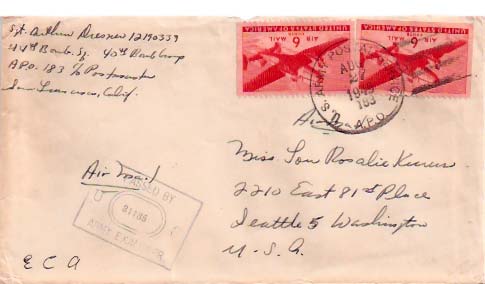 Sgt. Arthur Dresner 12190339
44th Bomb. Sq. 40th Bomb Group
A.P.O. 183 c/o Postmaster
San Francisco, Calif.
UNITED STATES OF AMERICA
AIR MAIL
6
CENTS
UNITED STATES OF AMERICA
AIR MAIL
6
CENTS
U.S. ARMY POSTAL SERVICE
AUG
183
A.P.O.
Air Mail
Air Mail
PASSED BY
U S
ARMY EXAMINER
Miss Lou Rosalie
2210 East 81st Place
Seattle 5 Washington
U.S.A.
E C A